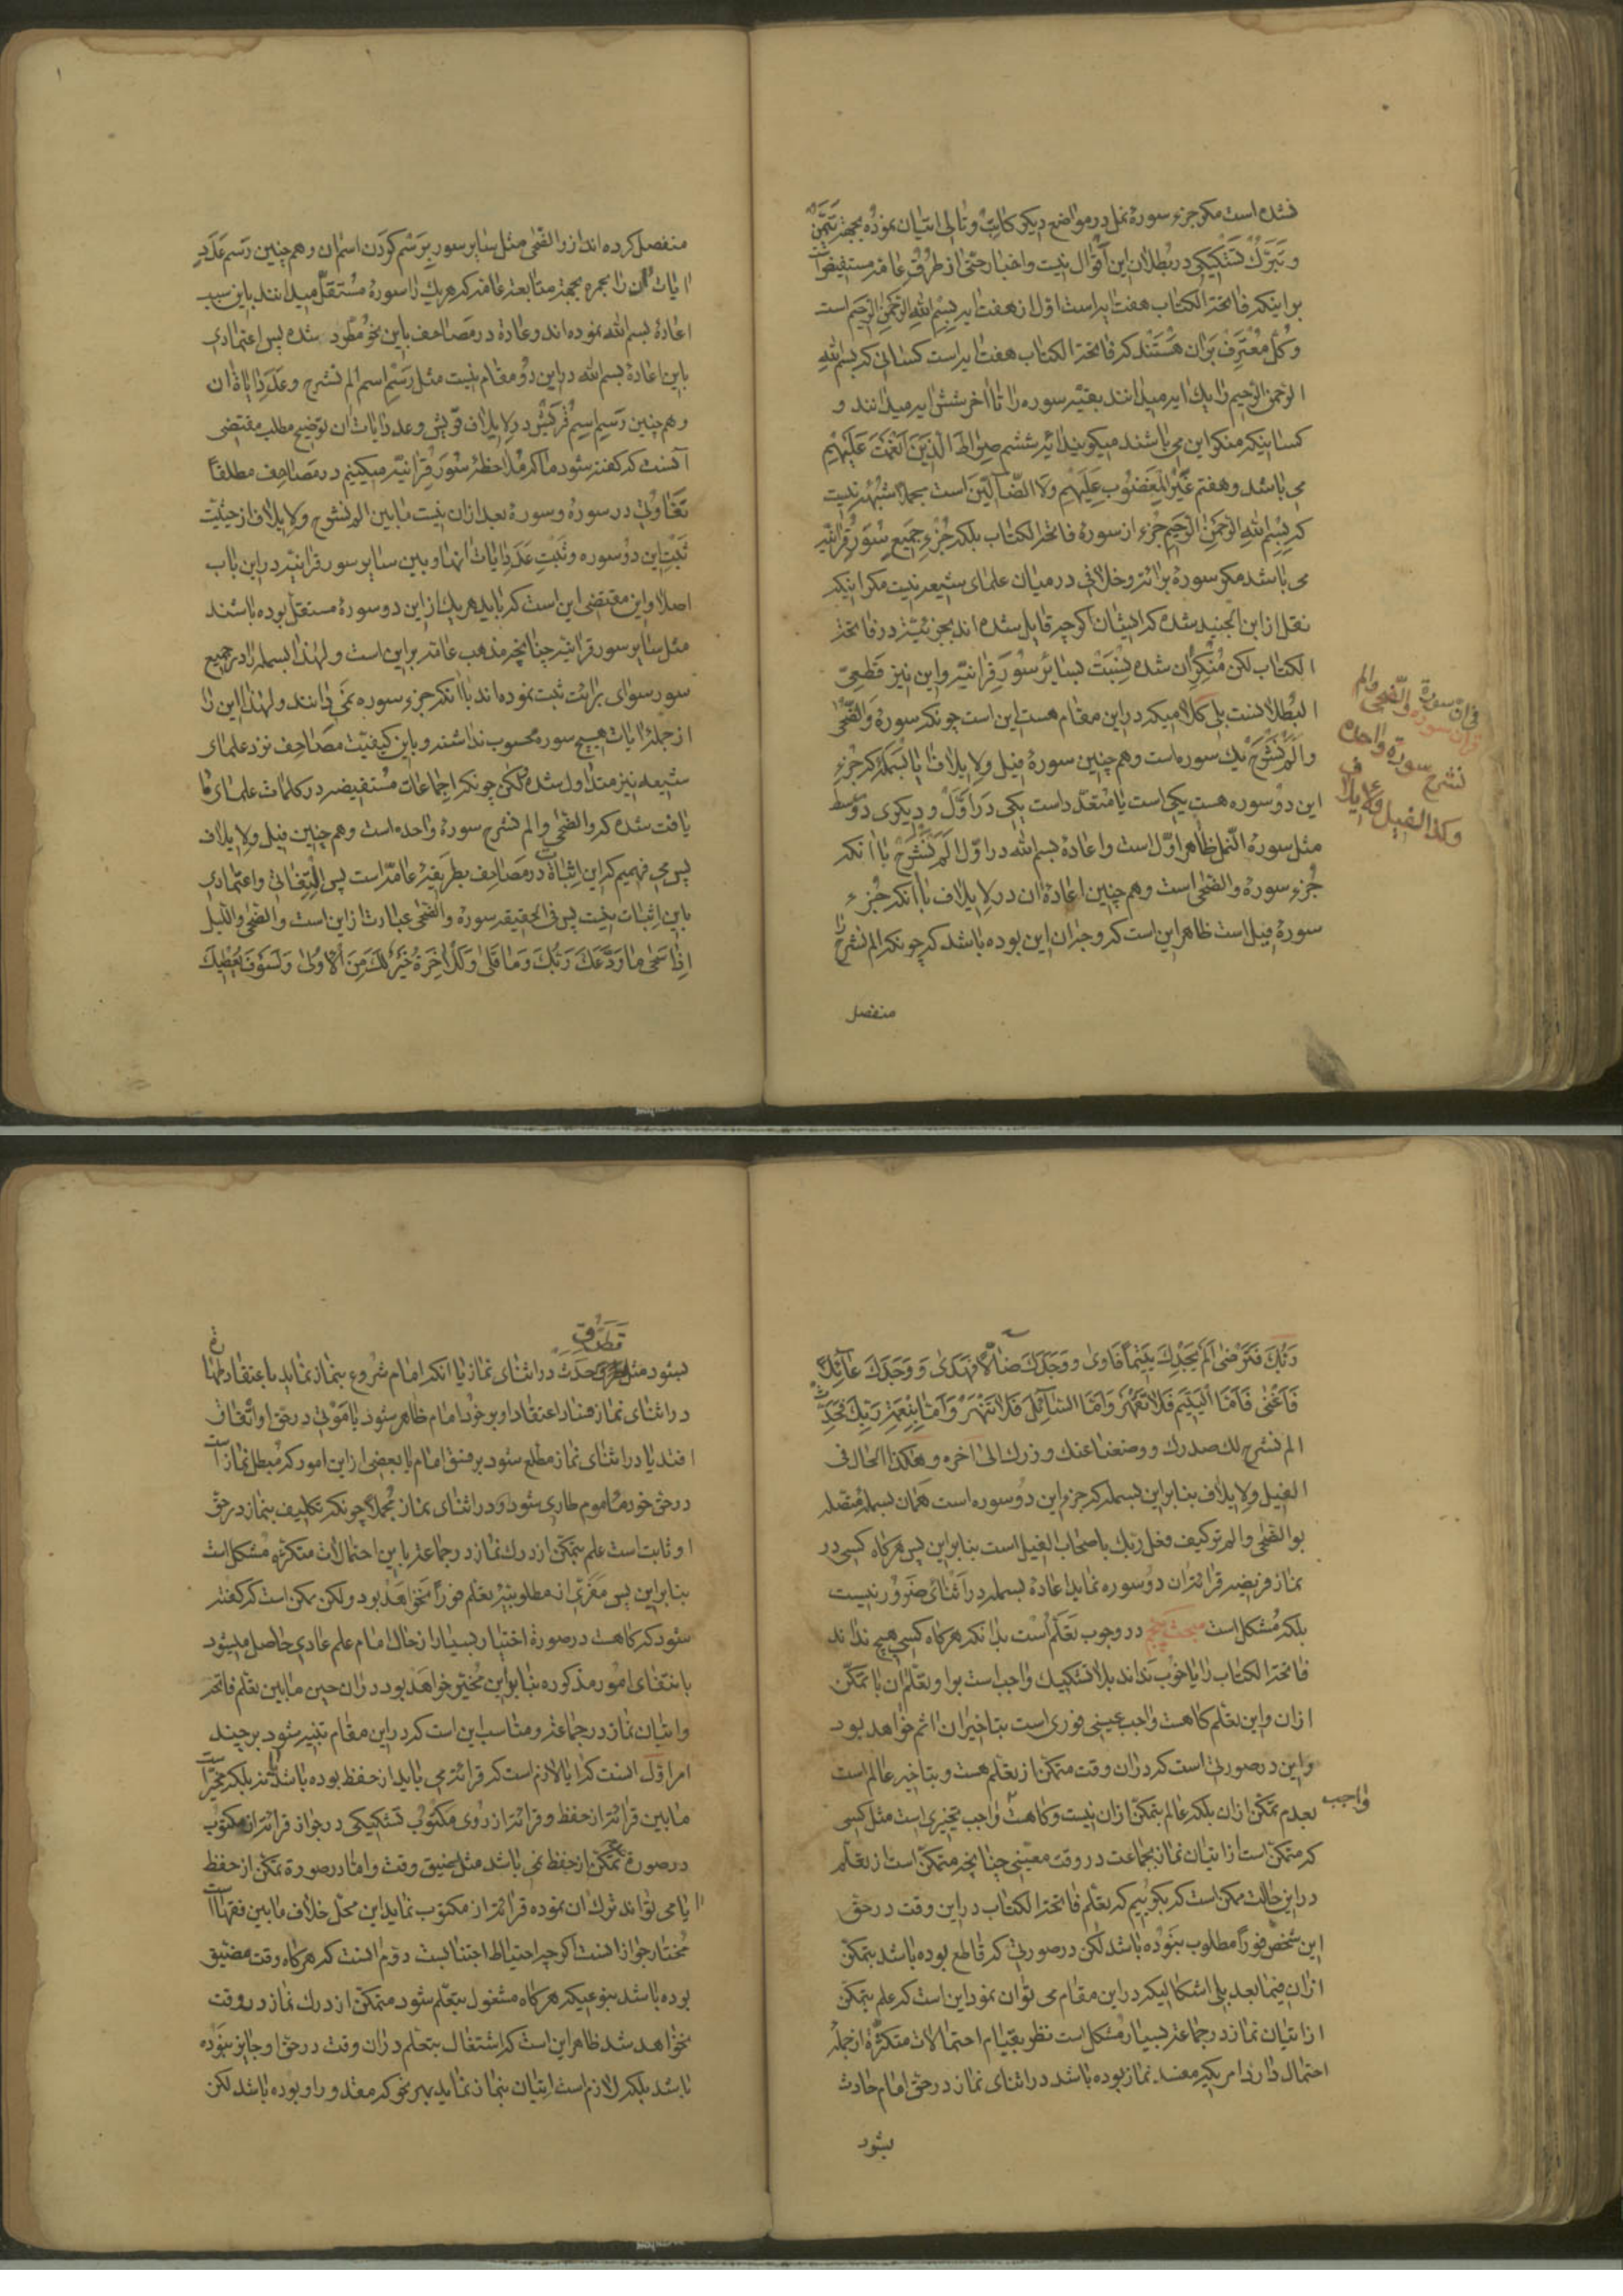 نشده است مکر جزء سورهٔ نمل در مواضع دیکر کاتب و تالی اتیان نموده بجهة تیمّن
و تبرّک تشکیکی در بطلان این اقوال نیست و اخبار حتی از طرف عامه مستفیض است
بر اینکه فاتحة الکتاب هفت ایه است اول از هفت ایه بسم الله الرحمن الرحیم است
و کل معترف بر ان هستند که فاتحة الکتاب هفت ایه است کسانی که بسم الله
الرحمن الرحیم را یک ایه میدانند بقیه سوره را تا اخر شش ایه میدانند و
کسانیکه منکر این می باشند میکویند ایهٔ ششم صِراطَ الَّذینَ اَنْعَمْتَ عَلَیْهِمْ
می باشد و هفتم غَیْرِ الْمَغْضُوبِ عَلَیْهِمْ وَلَا الضّالّینَ است مجملا شبهه نیست
که بسم الله الرحمن الرحیم جزء از سورهٔ فاتحة الکتاب بلکه جزء جمیع سور قرانیّه
می باشد مکر سورهٔ برائة و خلافی در میان علمای شیعه نیست مکر اینکه
نقل از ابن الجنید شده که ایشان اکر چه قایل شده اند بجزئیّة در فاتحة
الکتاب لکن منکر ان شده بنسبت بسایر سور قرانیّه و این نیز قطعیّ
البطلانست بلی کلامیکه در این مقام هست این است چونکه سورهٔ والضّحی
و الم نشرح یک سوره است و هم چنین سورهٔ فیل و لایلاف ایا بسمله که جزء
این دو سوره هست یکی است یا متعدّد است یکی در اوّل و دیکری در وسط
مثل سورهٔ النّمل ظاهر اوّل است و اعادهٔ بسم الله در اوّل الم نشرح با انکه
جزء سورهٔ والضحی است و هم چنین اعادهٔ ان در لایلاف با انکه جزء
سورهٔ فیل است ظاهر این است که وجه ان این بوده باشد که چونکه الم نشرح را
منفصل
فی ان سورة والضّحی والم
نشرح سورة واحدة
وکذا الفیل و لایلاف
منفصل کرده اند از والضّحی مثل سایر سور برسم کردن اسم ان و هم چنین رسم عدد
ایات ان را بحمره بجهة متابعة عامه که هریک را سورهٔ مستقلّ میدانند باین سبب
اعادهٔ بسم الله نموده اند و عادة در مصاحف باین نحو مطّرد شده پس اعتمادی
باین اعادهٔ بسم الله در این دو مقام نیست مثل رسم اسم الم نشرح و عدد ایات ان
و هم چنین رسم اسم قریش در لایلاف قریش و عدد ایات ان توضیح مطلب مقتضی
آنست که کفته شود ما که ملاحظهٔ سور قرانیّه میکنیم در مصاحف مطلقاً
تفاوتی در سوره و سورهٔ بعد از ان نیست مابین الم نشرح و لایلاف از حیثیّت
ثبت این دو سوره و ثبت عدد ایات انها و بین سایر سور قرانیّه در این باب
اصلا و این مقتضی این است که باید هریک از این دو سورهٔ مستقل بوده باشند
مثل سایر سور قرانیّه چنانچه مذهب عامّه بر این است و لهذا بسمله را در جمیع
سور سوای برائت ثبت نموده اند با انکه جزء سوره نمی دانند و لهذا این را
از جملهٔ ایات هیچ سوره محسوب نداشتند و باین کیفیّت مصاحف نزد علمای
شیعه نیز متداول شده لکن چونکه اجماعات مستفیضه در کلمات علمای ما
یافت شده که والضحی و الم نشرح سورهٔ واحده است و هم چنین فیل و لایلاف
پس می فهمیم که این اثبات در مصاحف بطریقهٔ عامّه است پس التفاتی و اعتمادی
باین اثبات نیست پس فی الحقیقه سورهٔ والضحی عبارت از این است والضحی واللیل
اذا سجی ما ودّعک ربّک وما قلی وللاخرة خیر لک من الاولی ولسوف یعطیک
رَبُّکَ فَتَرْضی اَلَمْ یَجِدْکَ یَتیماً فَاوی و وَجَدَکَ ضالّاً فَهَدی وَ وَجَدَکَ عائِلاً
فَاَغْنی فَاَمَّا الْیَتیمَ فَلا تَقْهَرْ وَاَمَّا السّائِلَ فَلا تَنْهَرْ وَاَمّا بِنِعْمَةِ رَبِّکَ فَحَدِّثْ
الم نشرح لک صدرک و وضعنا عنک وزرک الی اخره و هکذا الحال فی
الفیل و لایلاف بنابر این بسمله که جزء این دو سوره است همان بسملهٔ متصله
بوالضحی و الم تر کیف فعل ربّک باصحاب الفیل است بنابر این پس هرکاه کسی در
نماز فریضه قرائة ان دو سوره نماید اعادهٔ بسمله در اثنای ضرور نیست
بلکه مشکل است مبحث پنجم در وجوب تعلّم است بدانکه هرکاه کسی هیچ نداند
فاتحة الکتاب را یا خوب نداند بلا تشکیک واجب است بر او تعلّم ان با تمکّن
از ان و این تعلّم کاهست واجب عینی فوری است بتاخیر ان اثم خواهد بود
و این در صورتی است که در ان وقت متمکّن از تعلّم هست و بتاخیر عالم است
بعدم تمکّن از ان بلکه عالم بتمکّن از ان نیست و کاهست واجب تخییری است مثل کسی
واجب
که متمکّن است از اتیان نماز بجماعت در وقت معیّنی چنانچه متمکّن است از تعلّم
در این حالت ممکن است که بکوییم که تعلّم فاتحة الکتاب در این وقت در حقّ
این شخص فوراً مطلوب نبوده باشد لکن در صورتی که قاطع بوده باشد بتمکّن
از ان فیما بعد بلی اشکالیکه در این مقام می توان نمود این است که علم بتمکّن
از اتیان نماز در جماعة بسیار مشکل است نظر بقیام احتمالات متکثّره از جمله
احتمال دارد امریکه مفسد نماز بوده باشد در اثنای نماز در حقّ امام حادث
بشود
تطرّق
بشود مثل حدث در اثنای نماز یا انکه امام شروع بنماز نماید باعتقاد طهارة
در اثنای نماز فساد اعتقاد او بر خود امام ظاهر شود یا موتی در حق او اتّفاق
افتد یا در اثنای نماز مطّلع شود بر فسق امام یا بعضی از این امور که مبطل نماز است
در حق خود ماموم طاری شود در اثنای نماز مجملا چونکه تکلیف بنماز در حقّ
او ثابت است علم بتمکّن از درک نماز در جماعة باین احتمالات متکثّره مشکل است
بنابر این پس مفرّی از مطلوبیّت تعلّم فوراً نخواهد بود ولکن ممکن است که کفته
شود که کاهست در صورة اختبار بسیار از حال امام علم عادی حاصل میشود
بانتفای امور مذکوره بنابر این مخیّر خواهد بود در ان حین مابین تعلّم فاتحه
و اتیان نماز در جماعة و مناسب این است که در این مقام تنبیه شود بر چند
امر اوّل انست که ایا لازم است که قرائة می باید از حفظ بوده باشد یا نه بلکه مخیّر است
مابین قرائة از حفظ و قرائة از روی مکتوب تشکیکی در جواز قرائة از مکتوب
در صورة عدم تمکّن از حفظ نمی باشد مثل ضیق وقت و امّا در صورة تمکّن از حفظ
ایا می تواند ترک ان نموده قرائة از مکتوب نماید این محل خلاف مابین فقها است
مختار جواز انست اکر چه احتیاط اجتناب است دوّم انست که هرکاه وقت مضیّق
بوده باشد بنوعیکه هرکاه مشغول بتعلّم شود متمکّن از درک نماز در وقت
نخواهد شد ظاهر این است که اشتغال بتعلّم در ان وقت در حقّ او جایز نبوده
باشد بلکه لازم است اتیان بنماز نماید بهر نحو که مقدور او بوده باشد لکن